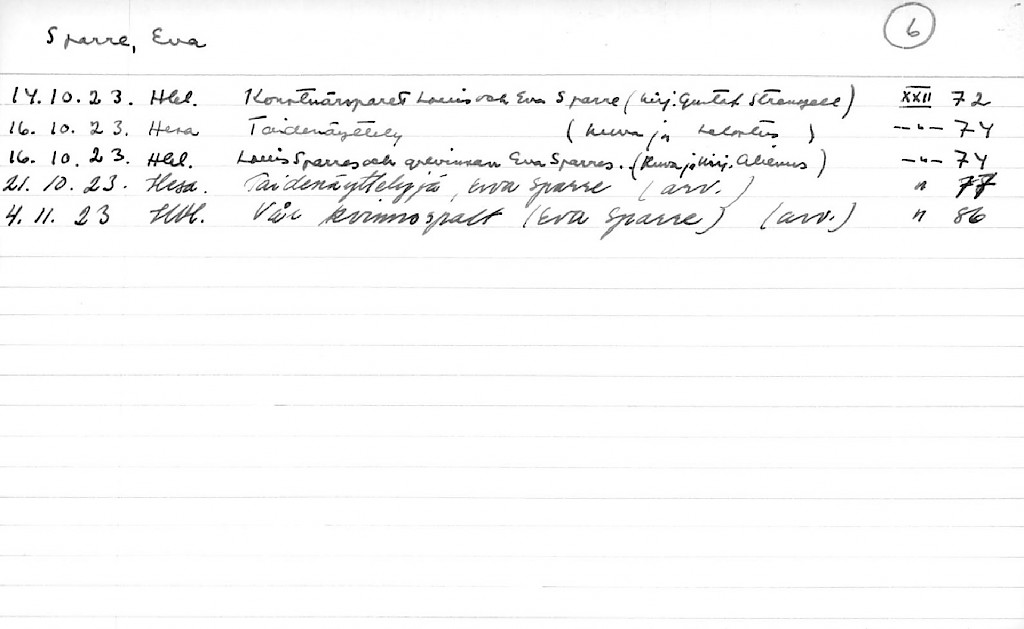 Sparre, Eva 6
14.10.23. Hbl. Konstnärsparet Louis och Eva Sparre (kirj. Gustaf Strengell) XXII 72
16.10.23. Hesa Taidenäyttely (kuva ja selostus) —"— 74
16.10.23. Hbl. Louis Sparres och grevinnan Eva Sparres. (Kuva ja kirj. Alienus) —"— 74
21.10.23. Hesa. Taidenäyttelyjä, Eva Sparre (arv.) " 77
4.11.23 Hbl. Vår kvinnospalt (Eva Sparre) (arv.) " 86